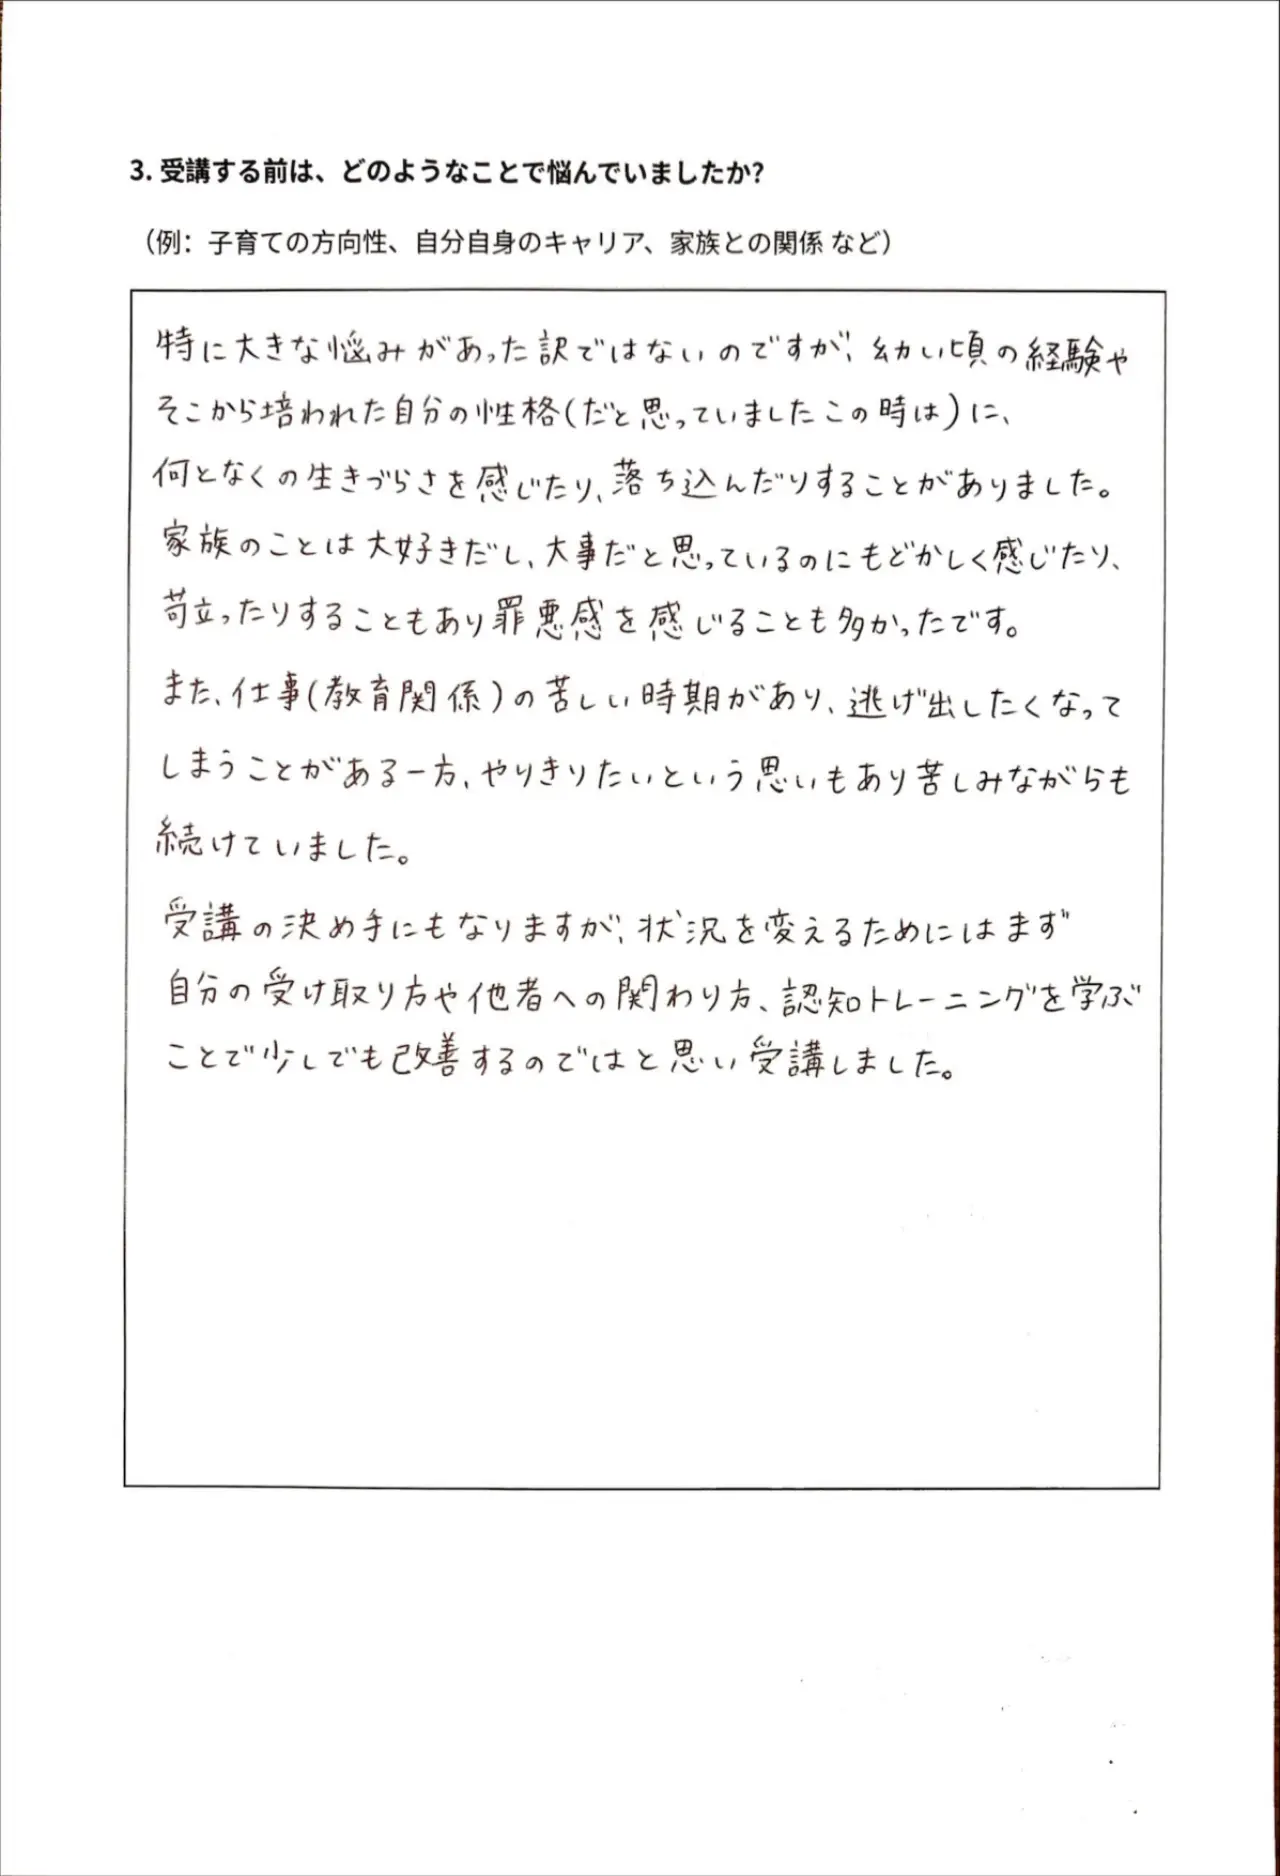 3. 受講する前は、どのようなことで悩んでいましたか?
（例：子育ての方向性、自分自身のキャリア、家族との関係 など）
特に大きな悩みがあった訳ではないのですが、幼い頃の経験や
そこから培われた自分の性格(だと思っていましたこの時は)に、
何となくの生きづらさを感じたり、落ち込んだりすることがありました。
家族のことは大好きだし、大事だと思っているのにもどかしく感じたり、
苛立ったりすることもあり罪悪感を感じることも多かったです。
また、仕事(教育関係)の苦しい時期があり、逃げ出したくなって
しまうことがある一方、やりきりたいという思いもあり苦しみながらも
続けていました。
受講の決め手にもなりますが、状況を変えるためにはまず
自分の受け取り方や他者への関わり方、認知トレーニングを学ぶ
ことで少しでも改善するのではと思い受講しました。